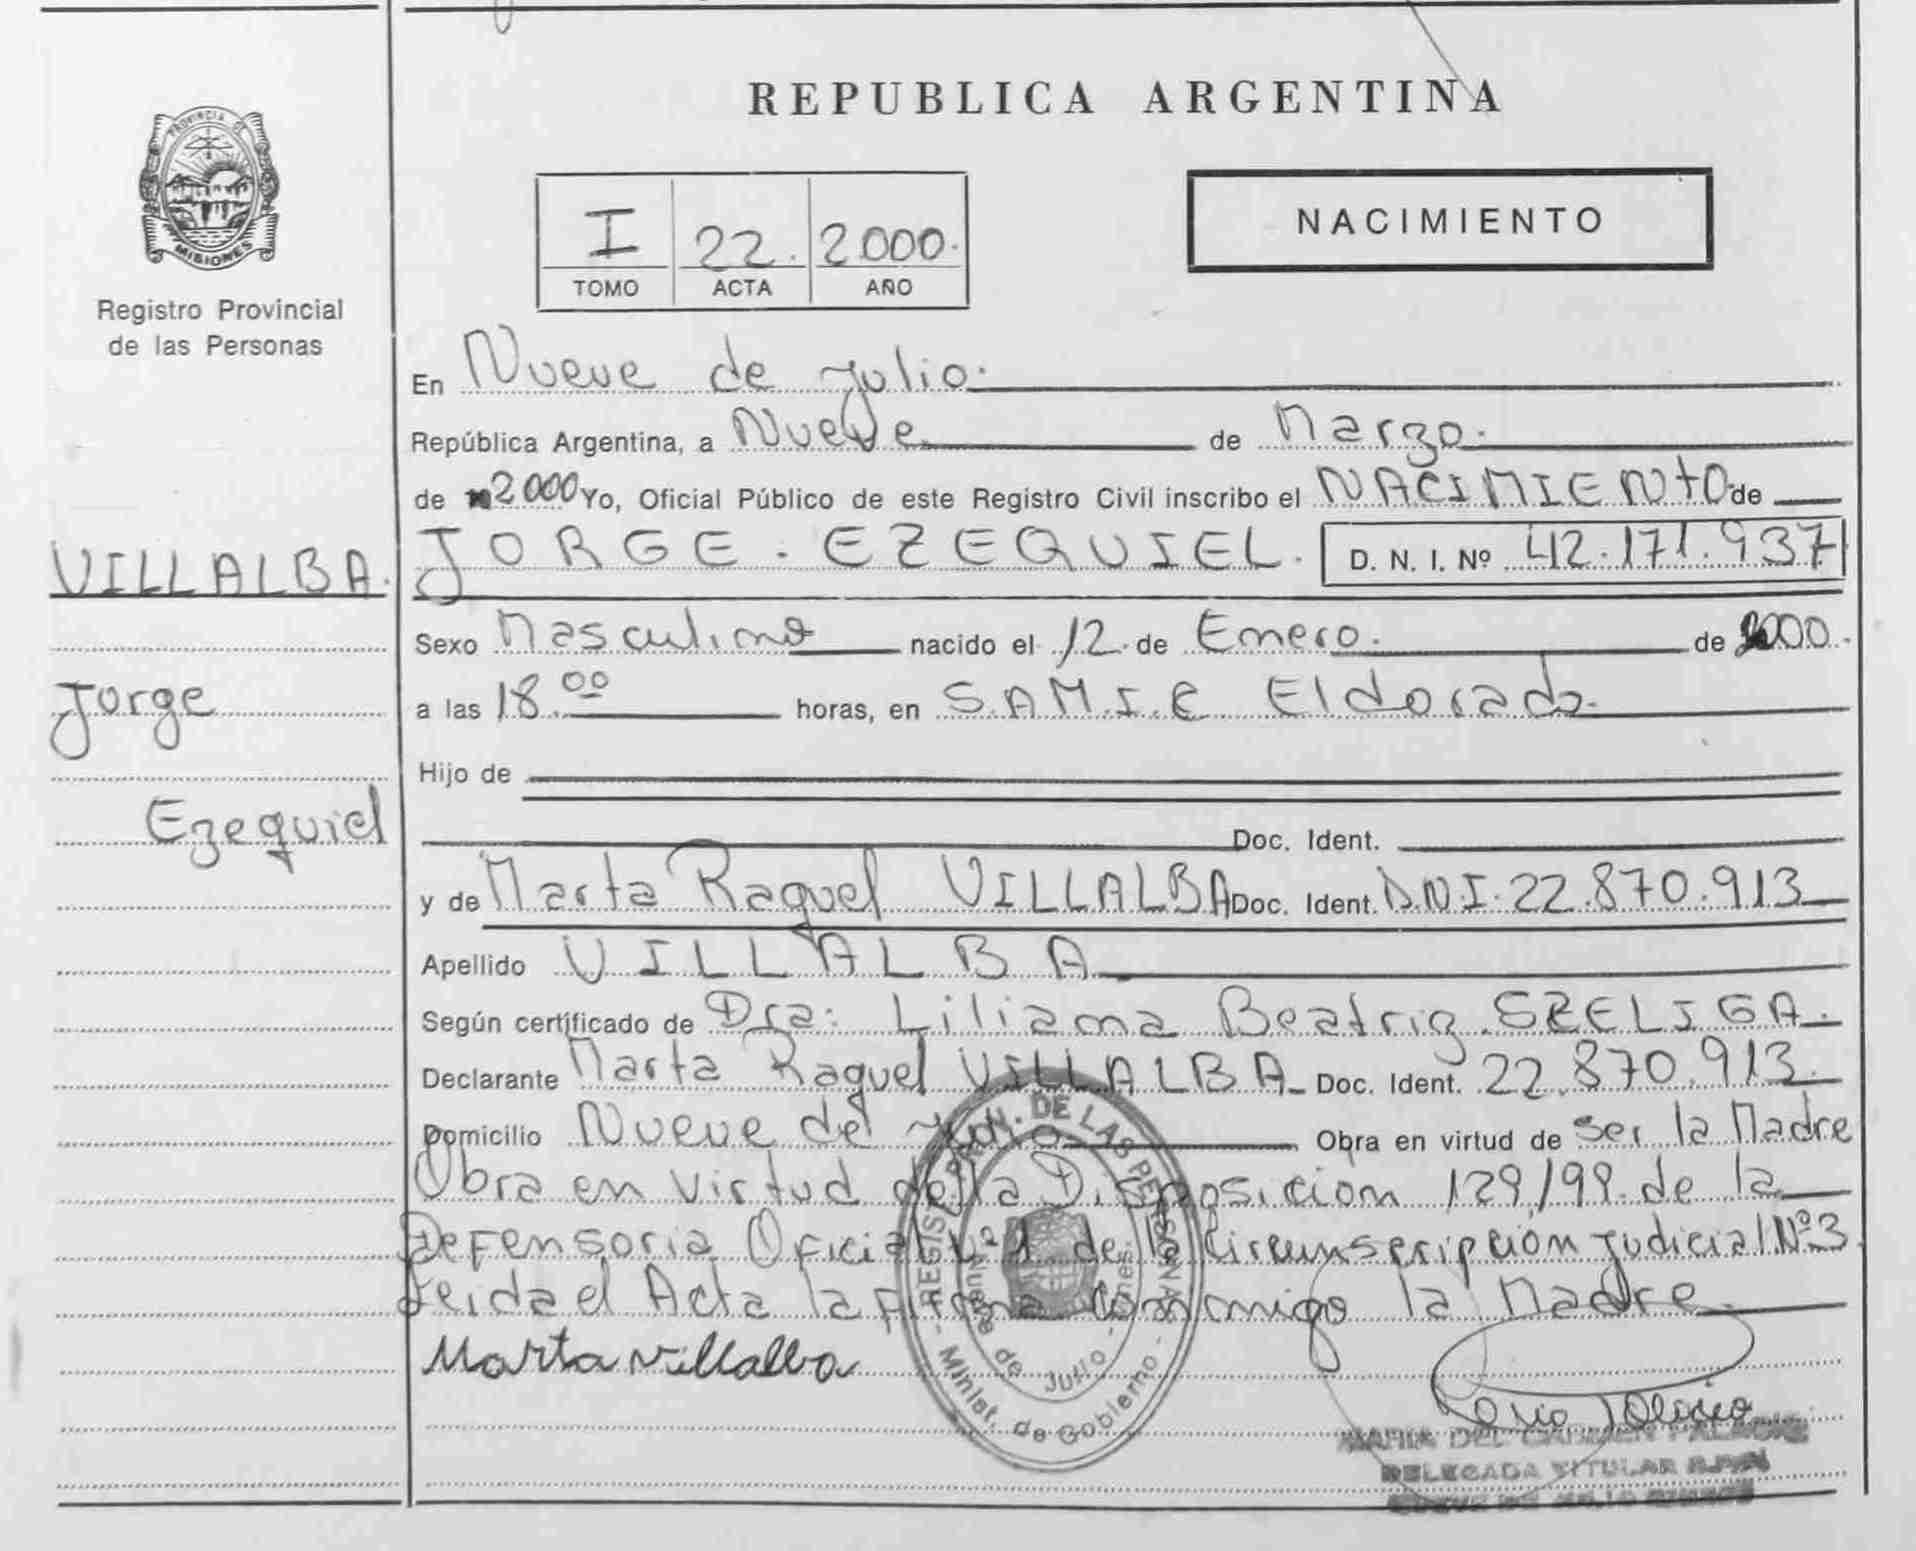 REPUBLICA ARGENTINA
PROVINCIA DE
MISIONES
Registro Provincial
de las Personas
I 22. 2000.
TOMO ACTA AÑO
NACIMIENTO
En Nueve de julio.
República Argentina, a Nueve de Marzo.
de 2000 Yo, Oficial Público de este Registro Civil inscribo el NACIMIENTO de
VILLALBA. JORGE. EZEQUIEL. D. N. I. Nº 42.171.937
Sexo Masculino nacido el 12 de Enero. de 2000.
Jorge a las 18.00 horas, en S.A.M.I.C Eldorado.
Hijo de
Ezequiel Doc. Ident.
y de Marta Raquel VILLALBA Doc. Ident. D.N.I. 22.870.913
Apellido VILLALBA
Según certificado de Dra: Liliana Beatriz SZELIGA.
Declarante Marta Raquel VILLALBA Doc. Ident. 22.870.913.
Domicilio Nueve de julio Obra en virtud de ser la Madre
Obra en virtud de la Disposicion 129/99. de la
Defensoria Oficial Nº1 de la Circunscripcion judicial Nº3
Leida el Acta la firma conmigo la Madre.
Marta villalba
DE LAS PERSONAS
Nueve de Julio
Minist. de Gobierno
MARIA DEL CARMEN
DELEGADA TITULAR